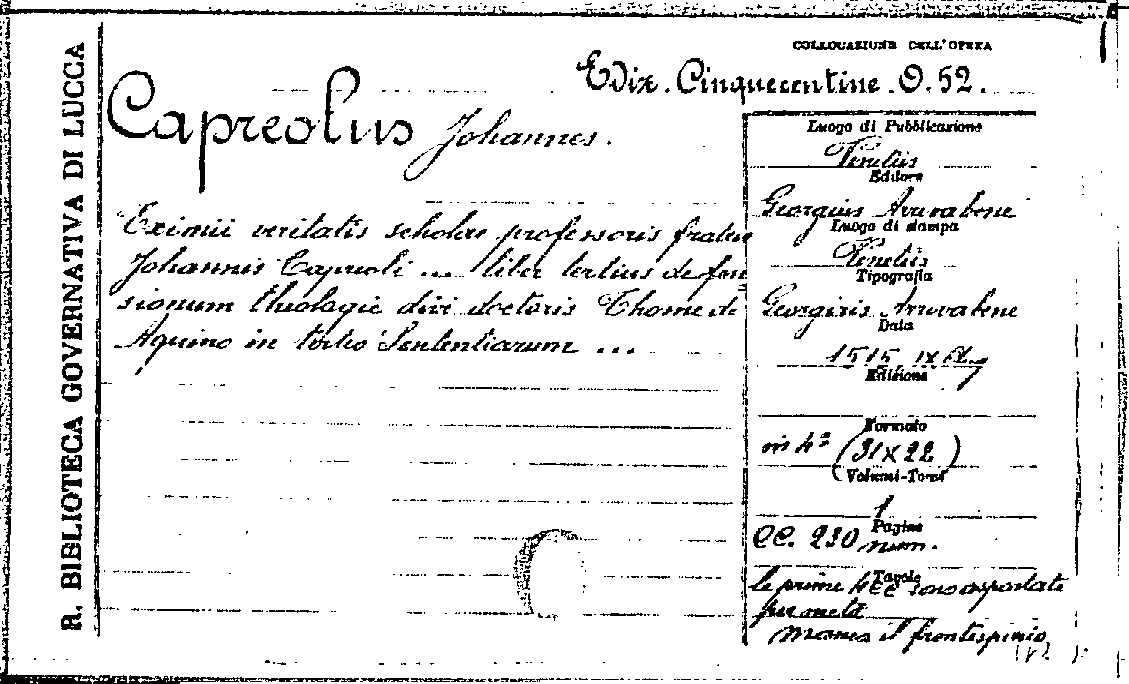 R. BIBLIOTECA GOVERNATIVA DI LUCCA
COLLOCAZIONE DELL'OPERA
Ediz. Cinquecentine. O. 52.
Capreolus Johannes.
Eximii veritatis scholae professoris fratris
Johannis Capreoli ... liber tertius defen
sionum theologie divi doctoris Thome de
Aquino in tertio Sententiarum ...
Luogo di Pubblicazione
Venetiis
Editore
Georgius Arrivabene
Luogo di stampa
Venetiis
Tipografia
Georgius Arrivabene
Data
1515 IX
Edizione
Formato
in 4º (31×22)
Volumi-Tomi
1
Pagine
CC. 230 num.
Tavole
le prime 4 cc sono asportate
per metà
manca il frontespizio